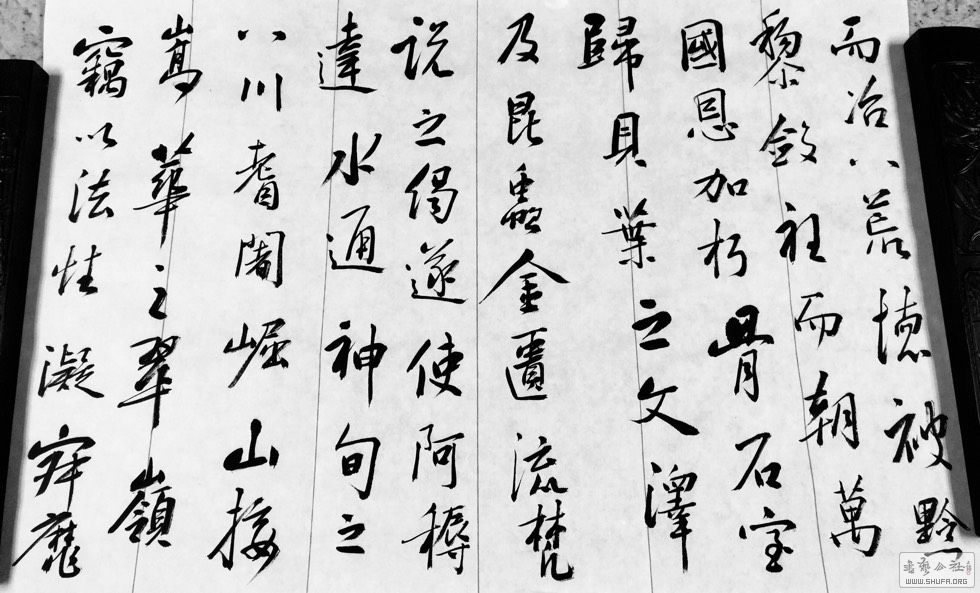 而冶八荒德被黔
黎斂衽而朝萬
國恩加朽骨石室
歸貝葉之文澤
及昆蟲金匱流梵
説之偈遂使阿耨
達水通神甸之
八川耆闍崛山接
嵩華之翠嶺
竊以法性凝寂靡
書藝公社
WWW.SHUFA.ORG